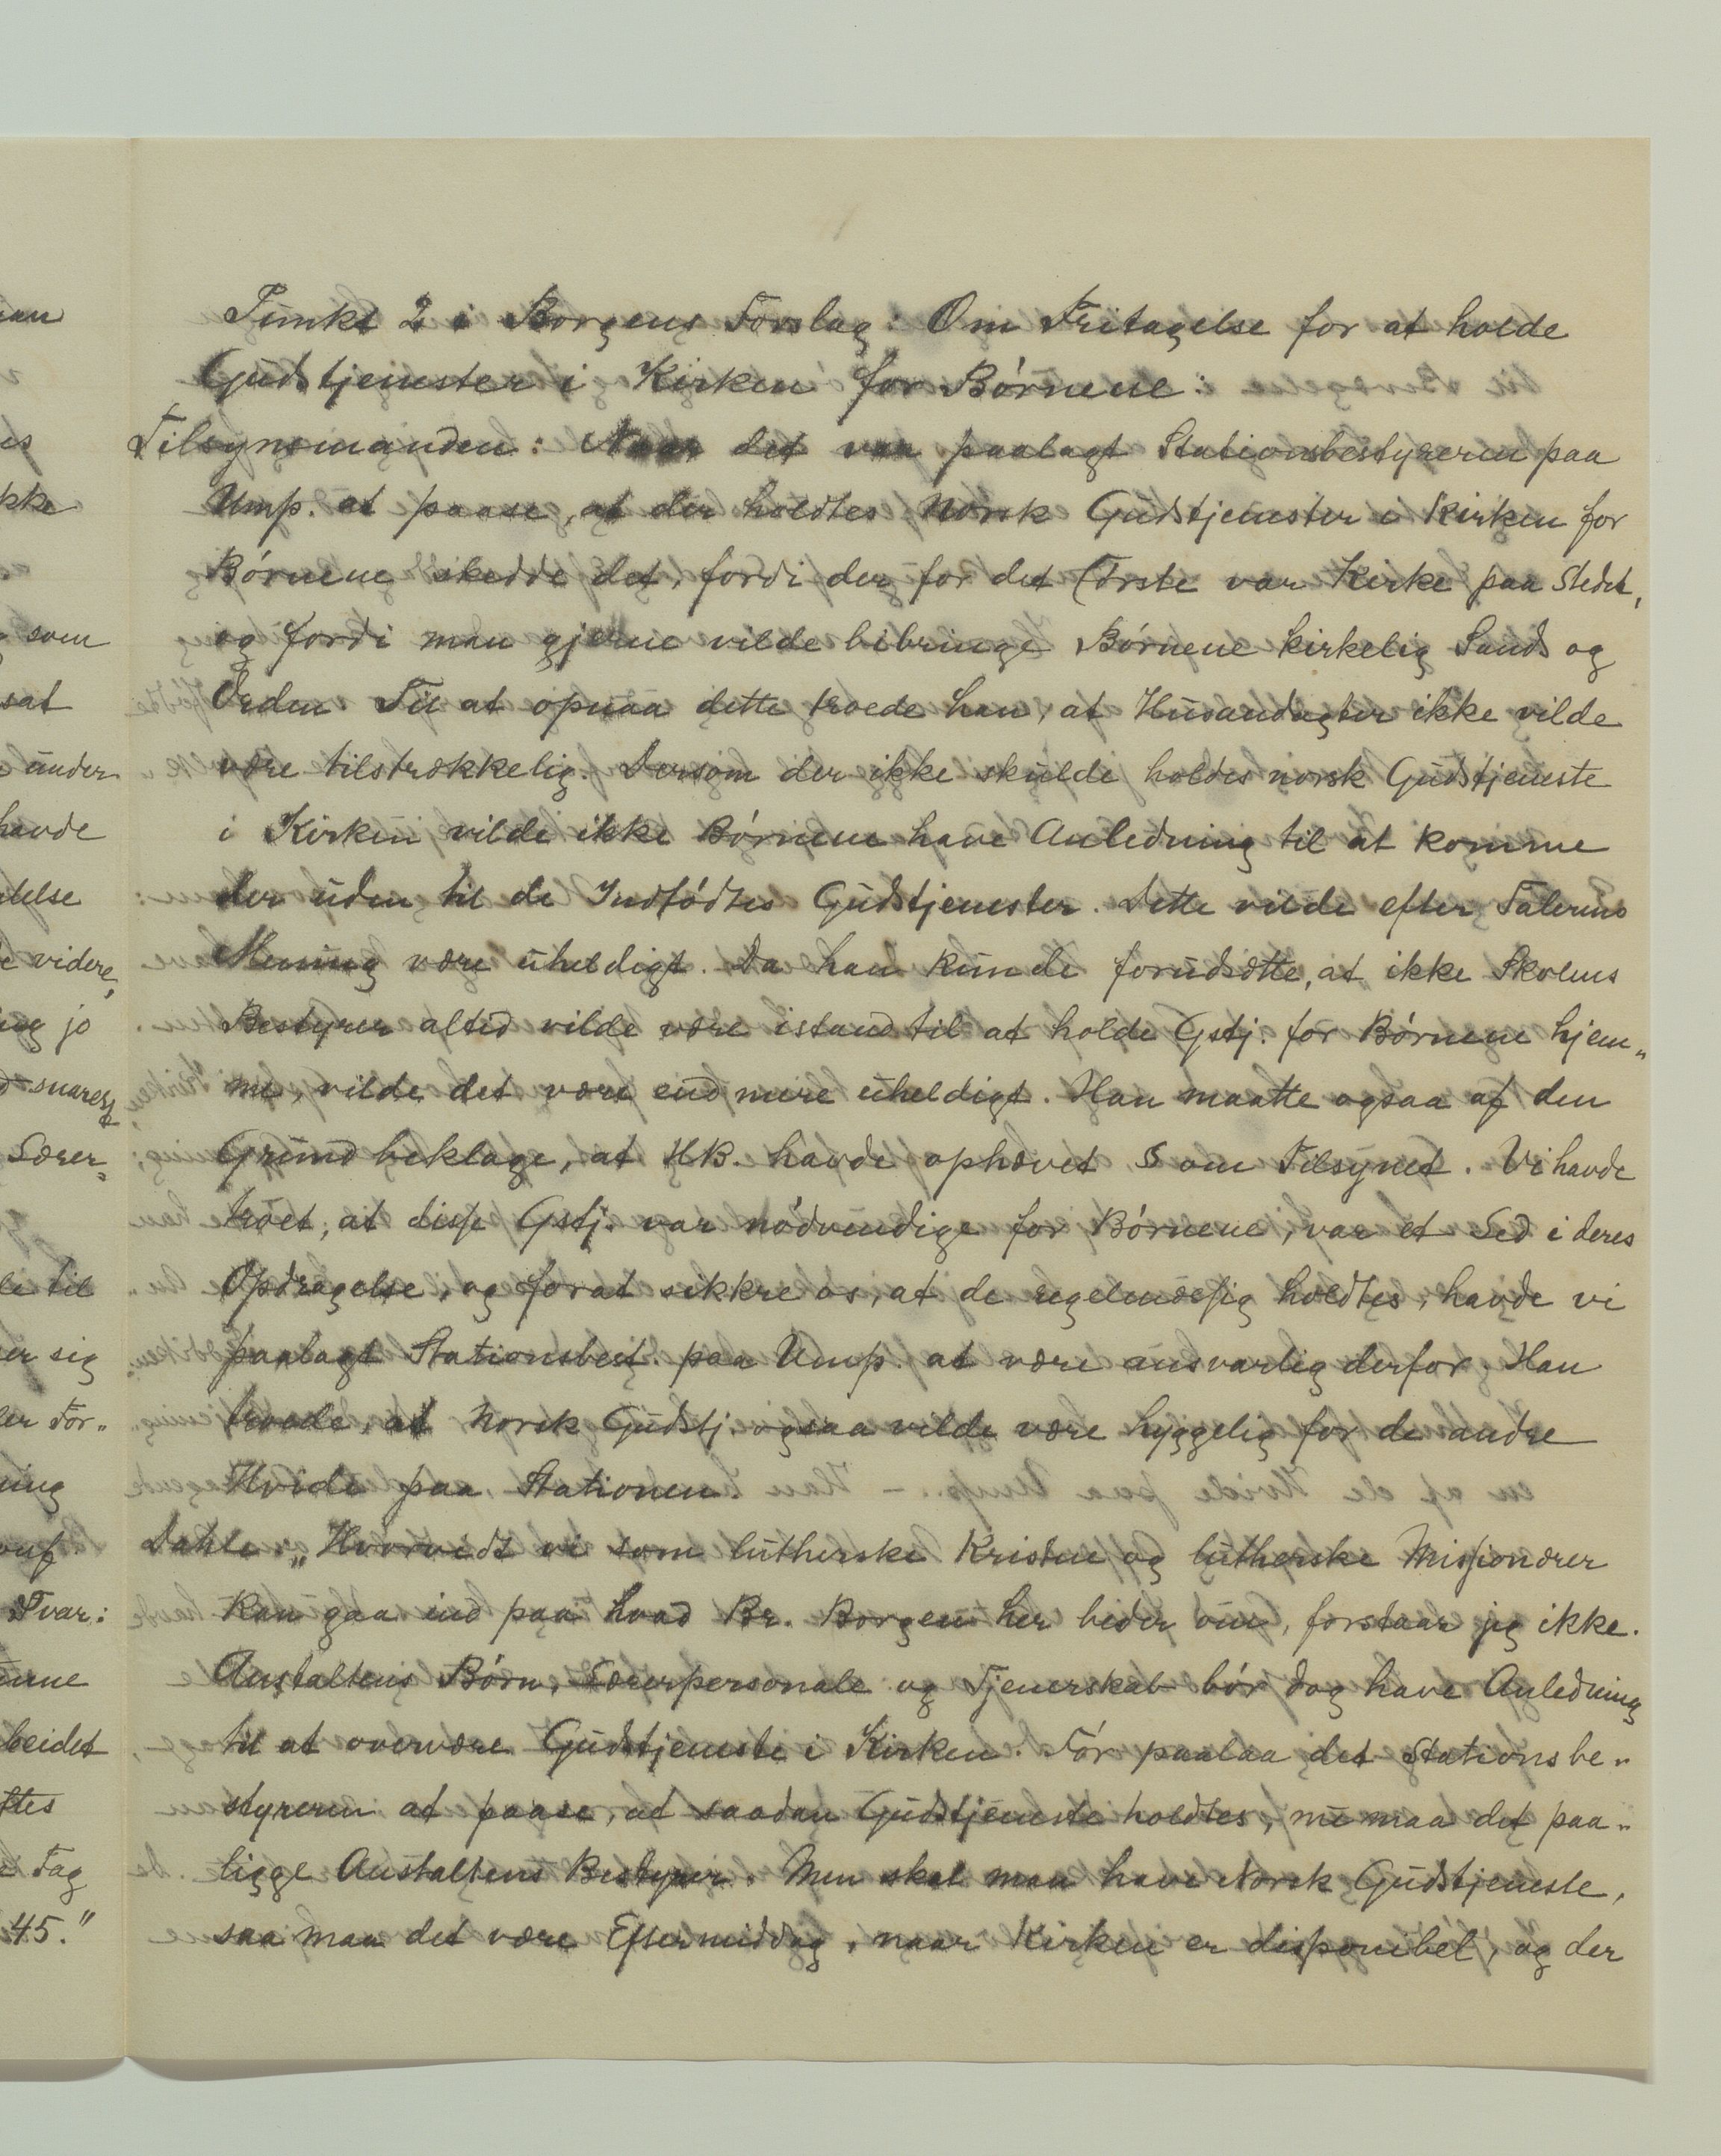 Punkt 2 i Borgens Forslag: Om Fritagelse for at holde
Gudstjenester i Kirken for Børnene:
Tilsynsmanden: Naar det var paalagt Stationsbestyreren paa
Ump. at paase, at der holdtes Norsk Gudstjenester i Kirken for
Børnene, skedde det, fordi der for det første var Kirke paa Stedet,
og fordi man gjerne vilde bibringe Børnene kirkelig Sands og
Orden. Til at opnaa dette troede han, at Husandagter ikke vilde
være tilstrækkelig. Dersom der ikke skulde holdes norsk Gudstjeneste
i Kirken vilde ikke Børnene have Anledning til at komme
der uden til de Indfødtes Gudstjenester. Dette vilde efter Talerens
Mening være uheldigt. Da han kunde forudsætte, at ikke Skolens
Bestyrer altid vilde være istand til at holde Gstj. for Børnene hjem„
me, vilde det være end mere uheldigt. Han maatte ogsaa af den
Grund beklage, at HB. havde ophævet § om Tilsynet. Vi havde
troet, at disse Gstj. var nødvendige for Børnene, var et Led i deres
Opdragelse, og forat sikkre os, at de regelmæssig holdtes, havde vi
paalagt Stationsbest. paa Ump. at være ansvarlig derfor. Han
troede, at Norsk Gudstj. ogsaa vilde være hyggelig for de andre
Hvide paa Stationen.
Dahle. „Hvorvidt vi som lutherske Kristne og lutherske Missionærer
kan gaa ind paa hvad Br. Borgen her beder om, forstaar jeg ikke.
Anstaltens Børn, Lærerpersonale og Tjenerskab bør dog have Anledning
til at overvære Gudstjeneste i Kirken. Før paalaa det Stationsbe„
styreren at paase, at saadan Gudstjeneste holdtes, nu maa det paa„
ligge Anstaltens Bestyrer. Men skal man have Norsk Gudstjeneste,
saa maa det være Eftermiddag, naar Kirken er disponibel, og der